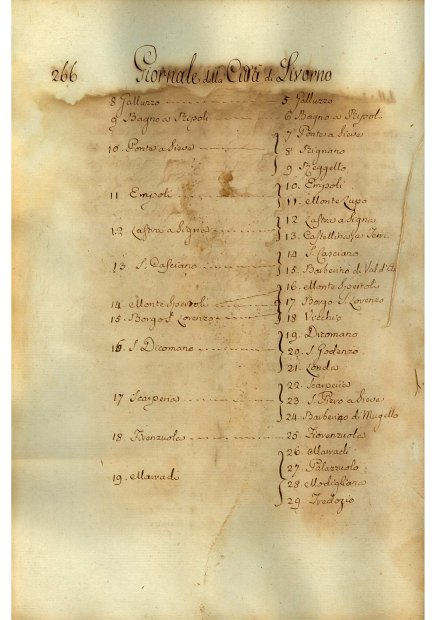 266 Giornale della Città di Livorno
8 Galluzzo 5. Galluzzo
9 Bagno a Ripoli 6 Bagno a Ripoli
7 Ponte a Sieve
10. Ponte a Sieve 8 Rignano
9 Reggello
10. Empoli
11 Empoli 11. Monte Lupo
12 Lastra a Signa
12 Lastra a Signa 13. Castellina e Torri
14 S. Casciano
13 S. Casciano 15. Barberino di Val d'
16. Monte Spertoli
14 Monte Spertoli 17 Borgo S. Lorenzo
15. Borgo S. Lorenzo 18 Vicchio
19. Dicomano
16 S. Dicomano 20. S. Godenzo
21. Londa
22. Scarperia
17 Scarperia 23 S. Piero a Sieve
24 Barberino di Mugello
18. Firenzuola 25 Fiorenzuola
26 Marradi
27. Palazzuolo
19. Marradi 28 Modigliana
29 Tredozio